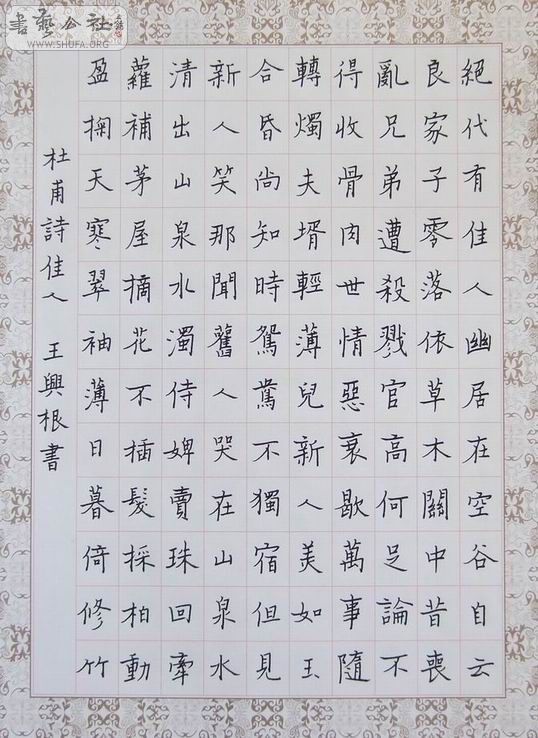 絕代有佳人幽居在空谷自云
良家子零落依草木關中昔喪
亂兄弟遭殺戮官高何足論不
得收骨肉世情惡衰歇萬事隨
轉燭夫壻輕薄兒新人美如玉
合昏尚知時鴛鴦不獨宿但見
新人笑那聞舊人哭在山泉水
清出山泉水濁侍婢賣珠回牽
蘿補茅屋摘花不插髮採柏動
盈掬天寒翠袖薄日暮倚修竹
杜甫詩佳人 王興根書
書藝公社
WWW.SHUFA.ORG